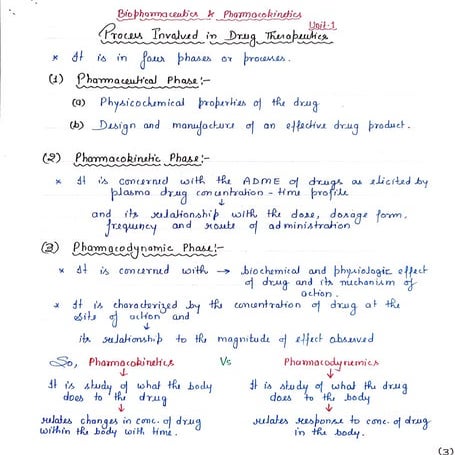 Biopharmaceutics & Pharmacokinetics
Unit-1
Process Involved in Drug Therapeutics
* It is in four phases or processes.
(1) Pharmaceutical Phase:-
(a) Physicochemical properties of the drug
(b) Design and manufacture of an effective drug product.
(2) Pharmacokinetic Phase:-
* It is concerned with the ADME of drugs as elicited by
plasma drug concentration - time profile
↓
and its relationship with the dose, dosage form,
frequency and route of administration
(3) Pharmacodynamic Phase:-
* It is concerned with → biochemical and physiologic effect
of drug and its mechanism of
action.
* It is characterized by the concentration of drug at the
site of action and
↓
its relationship to the magnitude of effect observed
So, Pharmacokinetics Vs Pharmacodynemics
↓ ↓
It is study of what the body It is study of what the drug
does to the drug does to the body
↓ ↓
relates changes in conc. of drug relates response to conc. of drug
within the body with time. in the body.
(3)